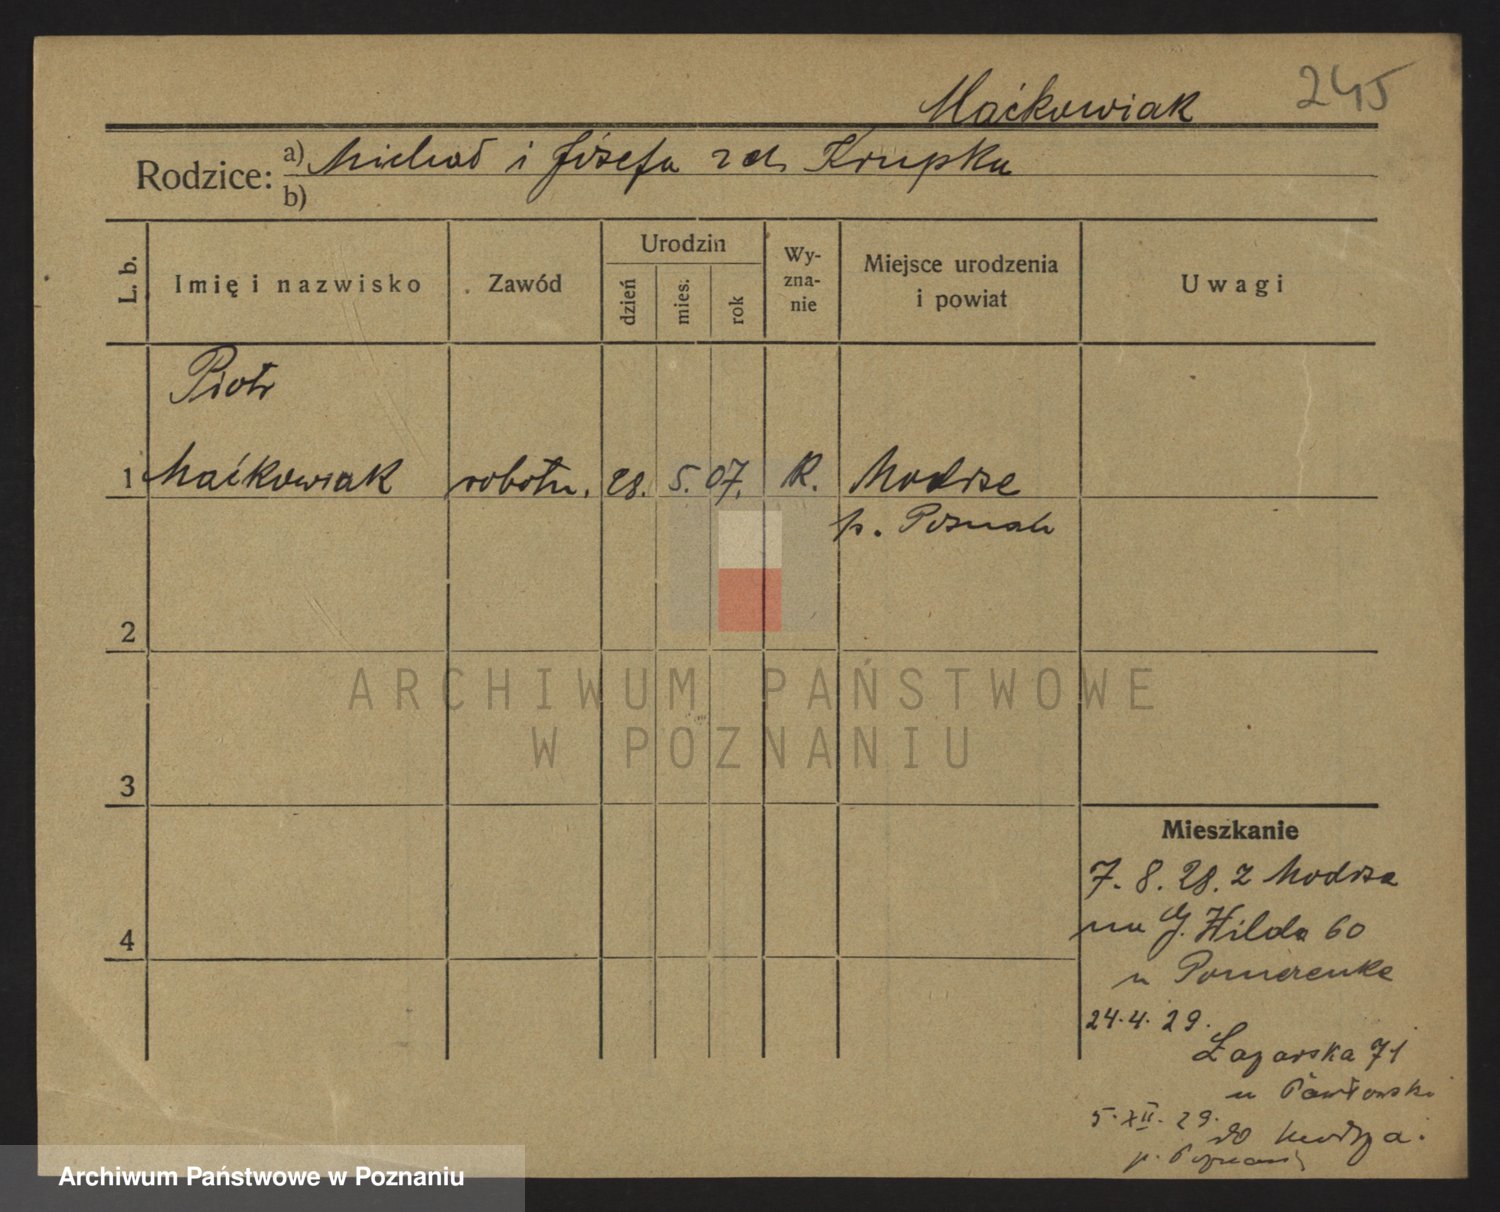 Maćkowiak 245
Rodzice: a) Michał i Józefa zd. Krupka
b)
L. b.
Imię i nazwisko
Zawód
Urodzin
dzień
mies.
rok
Wy-
zna-
nie
Miejsce urodzenia
i powiat
Uwagi
Piotr
1 Maćkowiak robotn. 28. 5. 07. R. Modrze
p. Poznań
2
3
4
Mieszkanie
7. 8. 28. z Modrza
na G. Wilda 60
u Pomerenke
24. 4. 29.
Łazarska 71
u Pawłowski
5. XII. 29.
do Modrza.
p. Poznań
ARCHIWUM PAŃSTWOWE
W POZNANIU
Archiwum Państwowe w Poznaniu